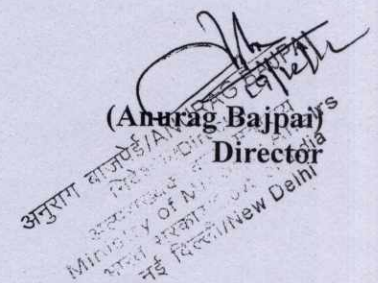 (Anurag Bajpai)
Director
अनुराग बाजपेई/ANURAG BAJPAI
निदेशक/Director
Ministry of
भारत सरकार
नई दिल्ली/New Delhi